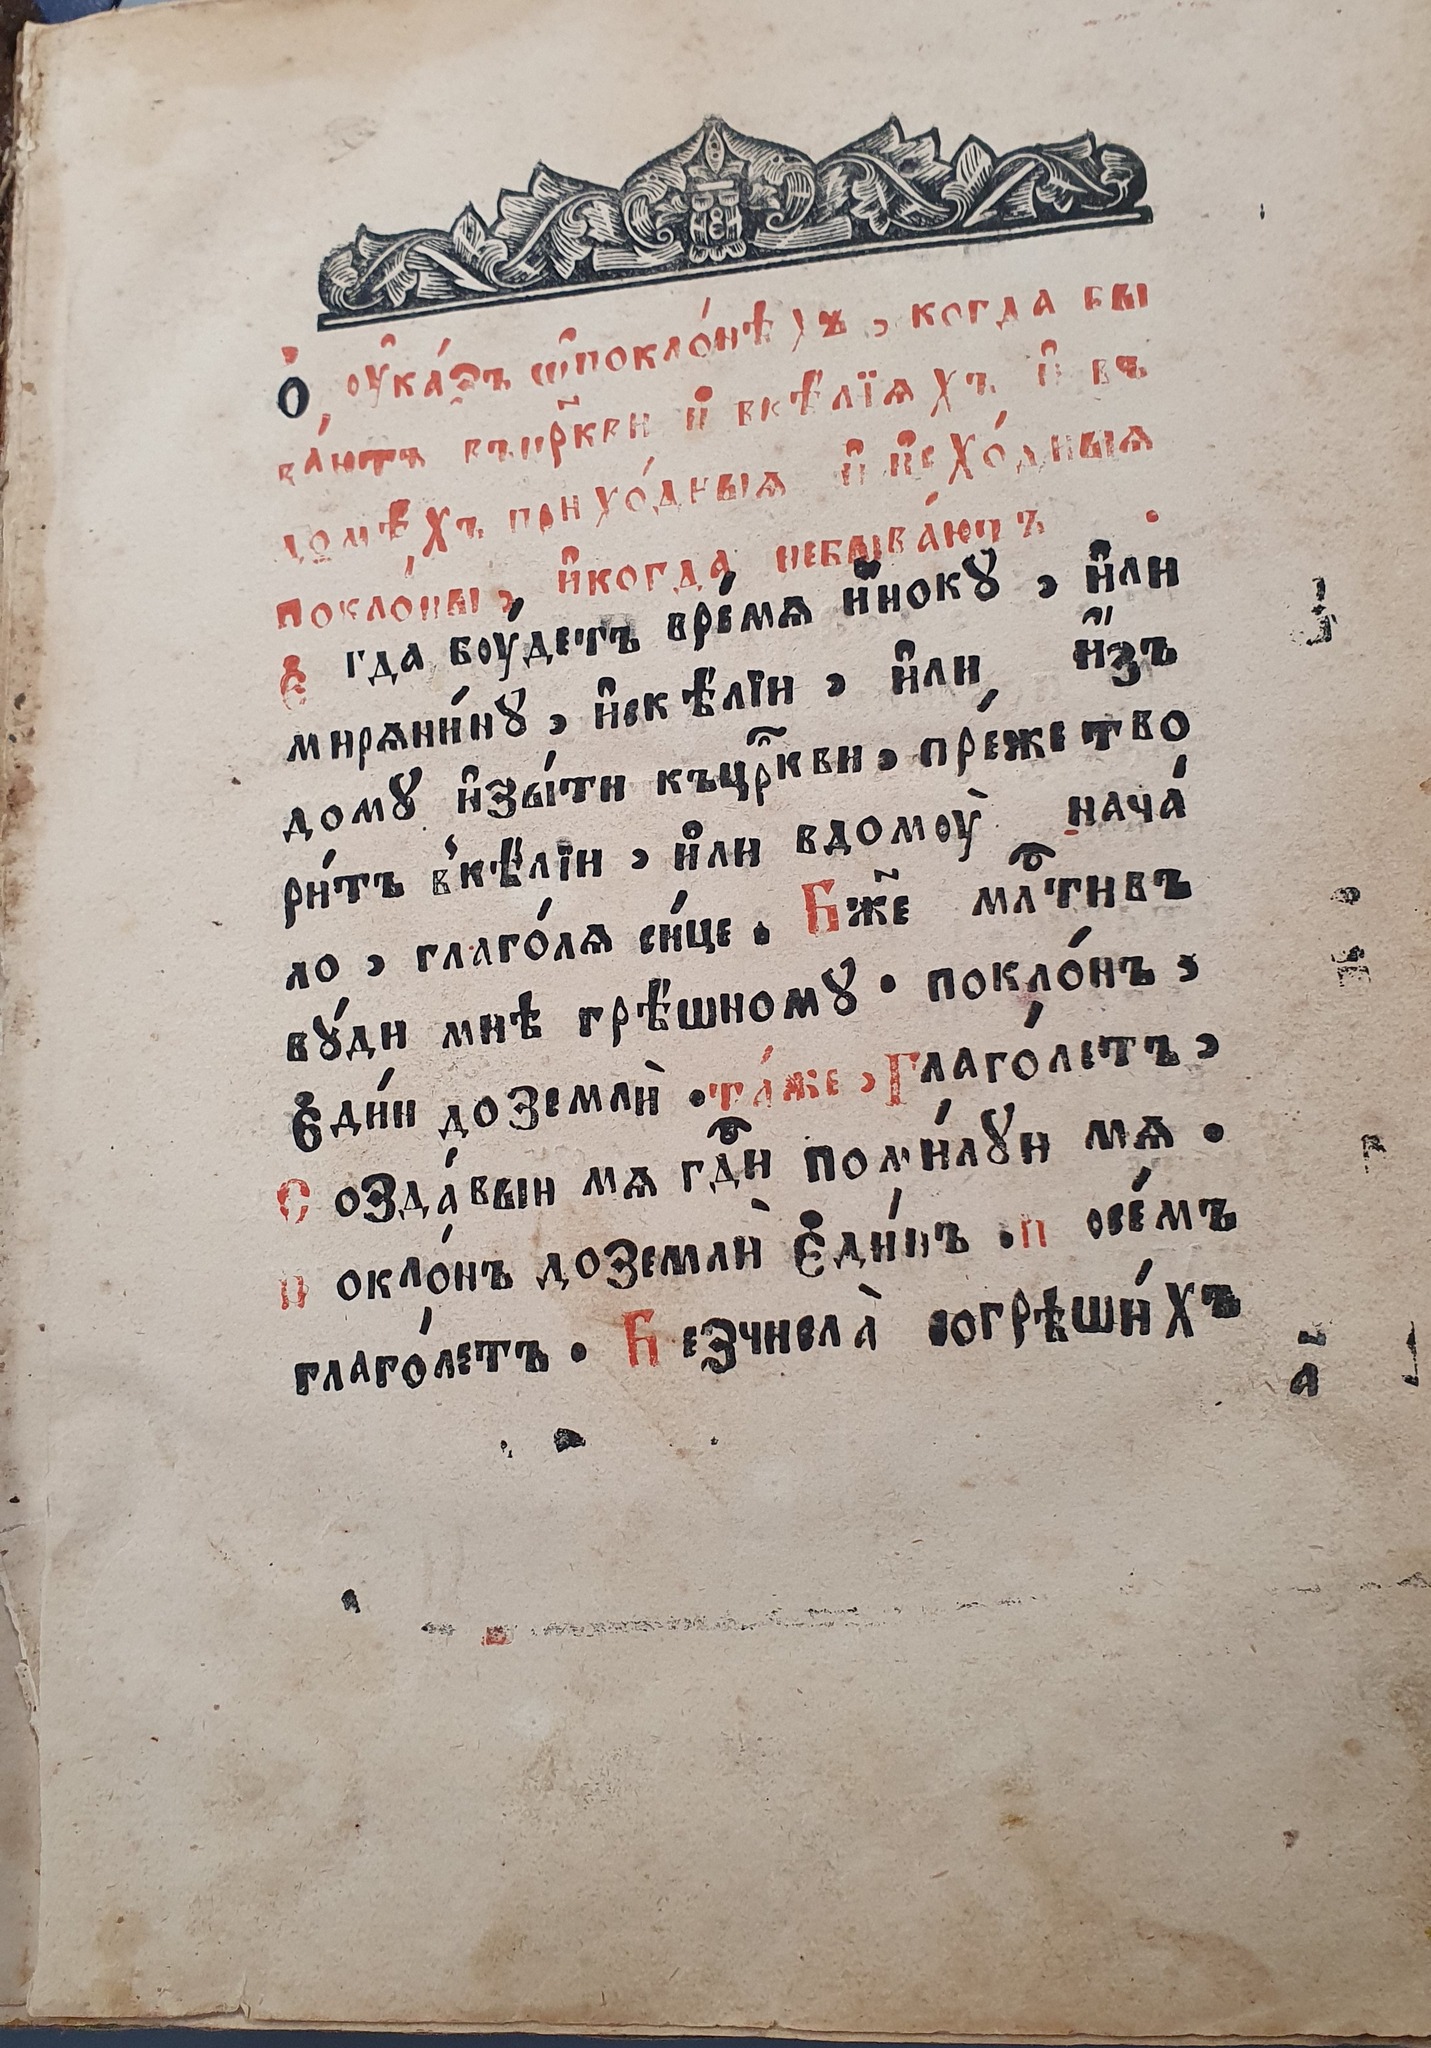 Ѻ оу҆ка́зъ ѡ҆поклѻ́нѣхъ, когда бы
ва́ютъ въцр҃кви и҆ вкѣ́лїѧхъ и҆ въ
домѣ́хъ прихо́дныѧ и҆ и҆схо́дныѧ
поклѻ́ны, и҆когда небыва́ютъ.
Є҆гда боу́детъ вре́мѧ и҆́нокꙋ, и҆ли
мирѧни́нꙋ, и҆скѣ́лїи, и҆ли и҆́зъ
домꙋ и҆зы́ти къцр҃кви, пре́жетво
ри́тъ в̾кѣ́лїи, и҆ли вдомоу̀ нача́
ло, глаго́лѧ си́це. Бж҃е млⷭ҇тивъ
бꙋ́ди мнѣ грѣ́шномꙋ. покло́нъ,
є҆ди́н доземлѝ. та́же, глаго́летъ,
Созда́выи мѧ гдⷭ҇и поми́лꙋи мѧ.
покло́нъ доземлѝ є҆ди́нъ. посе́мъ
глаго́летъ. Безчисла̀ согрѣши́хъ
а҃